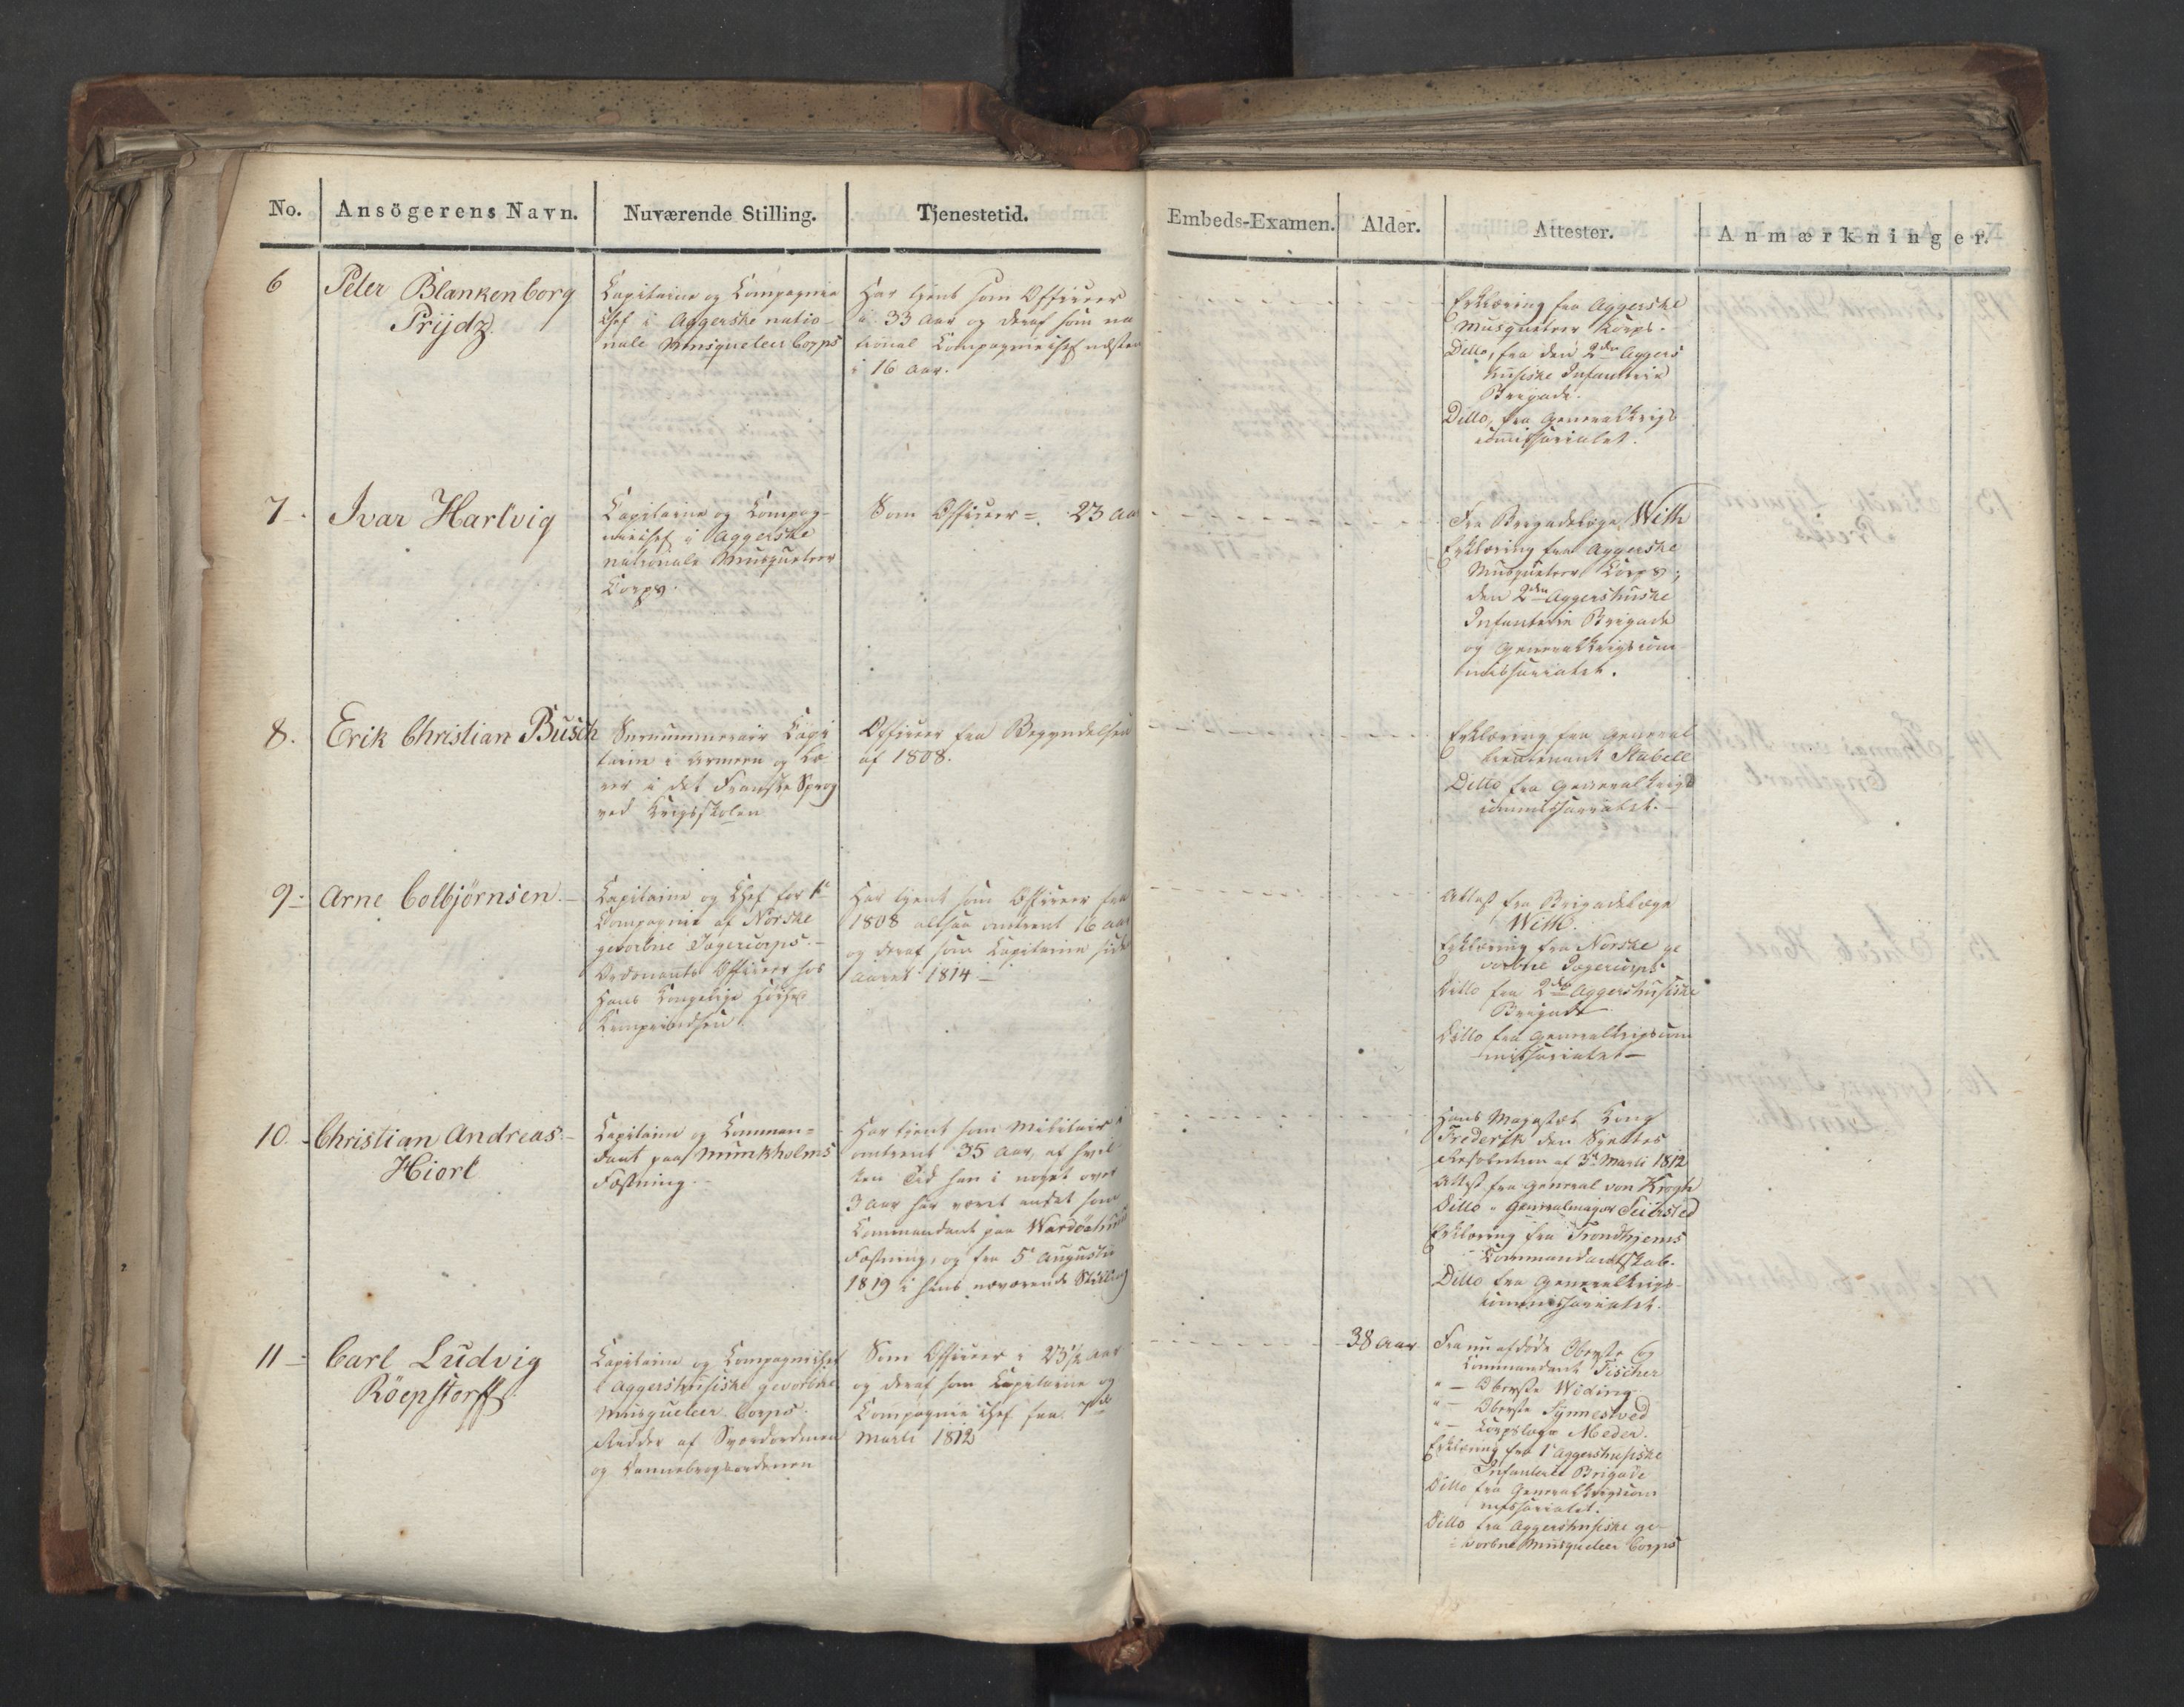 No. Ansögerens Navn. Nuværende Stilling. Tjenestetid. Embeds-Examen. Alder. Attester. Anmærkninger.
6 Peter Blankenborg
Prijdz.
Capitaine og Compagnie
Chef i Aggerske natio-
nale Musqueteer Corps
Har tjent som Officeer
i 33 Aar og deraf som na
tional Compagniechef næsten
i 16 Aar.
Erklæring fra Aggerske
Musqueteer Korps.
Ditto, fra den 2den Aggers
huusiske Infanterie
Brigade.
Ditto, fra Generalkrigs
commissariatet.
7 Ivar Hartvig
Capitaine og Compag-
niechef i Aggerske
nationale Musqueteer
Corps.
Som Officeer = 23 Aa
Fra Brigadelæge With
Erklæring fra Aggerske
Musqueteer Corps;
den 2den Aggershuuske
Infanterie Brigade
og Generalkrigscom
missariatet.
8. Erik Christian Busch
Surnummerair Capi
taine i Armeen og Læ
rer i det Franske Sprog
ved Krigsskolen
Officeer fra Begyndelsen
af 1808.
Erklæring fra General
lieutenant Stabell
Ditto fra Generalkrigs
commissariatet.
9 Arne Colbjørnsen.
Capitaine og Chef for 1te
Compagnie af Norske
gevorbne Jægercorps.
Ordonants Officeer hos
Hans Kongelige Høihed
Kronprindsen
Har tjent som Officeer fra
1808 altsaa omtrent 16 Aar
og deraf som Capitaine siden
Aaret 1814
Attest fra Brigadelæge
With.
Erklæring fra Norske ge
vorbne Jægercorps
Ditto fra 2den Aggershusiske
Brigade
Ditto fra Generalkrigscom
missariatet
10 Christian Andreas
Hiort
Capitaine og Comman=
dant paa Munkholms
Fæstning.
Har tjent som Militair i
omtrent 35 Aar, af hvil
ken Tid han i noget over
3 Aar har været ansat som
Commandant paa Wardøehuus
Fæstning, og fra 5te Augustii
1819 i hans nærværende Stilling
Hans Majestæt Kong
Frederik den Syettes
Resolution af 3die Marti 1812
Attest fra General von Krogh
Ditto " Generalmajor Seiersted
Erklæring fra Trondhjems
Commandantskab.
Ditto fra Generalkrigs-
commissariatet.
11 Carl Ludvig
Röepstorff
Capitaine og Compagniechef
i Aggershusiske gevorbne
Musqueteer Corps.
Ridder af Sværdordenen
og Dannebrogsordenen
Som Officeer i 23½ Aar
og deraf som Capitaine og
Compagnie Chef fra 7de
Marti 1812
38 Aar
Fra nu afdøde Oberste og
Commandant Fischer
" — Oberste Widing
" — Oberste Synnestved
" — Corpslæge Meder.
Erklæring fra 1te Aggershusiske
Infanterie Brigade
Ditto fra Generalkrigscom
missariatet.
Ditto fra Aggershusiske ge-
vorbne Musqueteer Corps